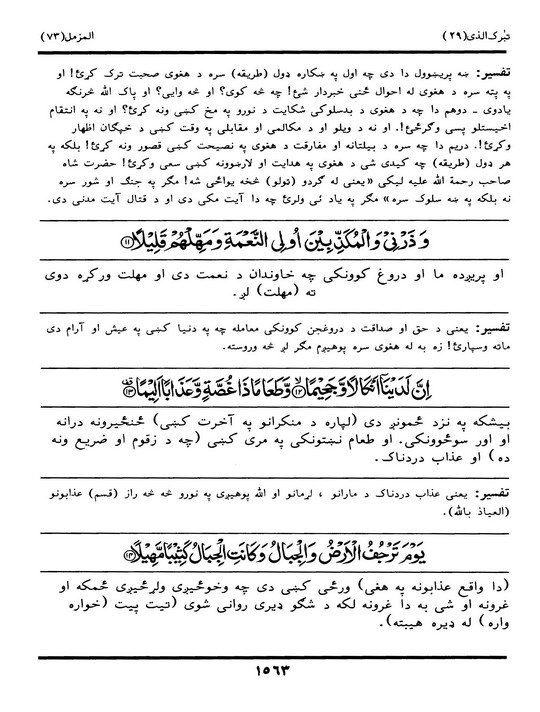 تبٰرک الذی (۲۹) المزمل (۷۳)
تفسیر: ښه پریښوول دا دی چه اول په ښکاره ډول (طریقه) سره د هغوی صحبت ترک کړئ! او
په پته سره د هغوی له احوال ځنی خبردار شئ! چه څه کوی؟ او څه وایی؟ او پاک الله څرنګه
یادوی ـ دوهم دا چه د هغوی د بدسلوکی شکایت د نورو په مخ کښی ونه کړئ؟ او نه په انتقام
اخیستلو پسی وګرځئ!. او نه د ویلو او د مکالمی او مقابلی په وقت کښی د خپګان اظهار
وکړئ!. دریم دا چه سره د بیلتانه او مفارقت د هغوی په نصیحت کښی قصور ونه کړئ! بلکه په
هر ډول (طریقه) چه کیدی شی د هغوی په هدایت او لارښوونه کښی سعی وکړئ! حضرت شاه
صاحب رحمة الله علیه لیکی «یعنی له ګردو (ټولو) څخه یواځی شه! مګر په جنګ او شور سره
نه بلکه په ښه سلوک سره» مګر په یاد ئی ولرئ چه دا آیت مکی دی او د قتال آیت مدنی دی.
وَ ذَرْنِیْ وَ الْمُكَذِّبِیْنَ اُولِی النَّعْمَةِ وَ مَهِّلْهُمْ قَلِیْلًا ﴿۱۱﴾
او پریږده ما او دروغ ګوونکی چه خاوندان د نعمت دی او مهلت ورکړه دوی
ته (مهلت) لږ.
تفسیر: یعنی د حق او صداقت د دروغجن ګوونکی معامله چه په دنیا کښی په عیش او آرام دی
ماته وسپارئ! زه به له هغوی سره پوهیږم مګر لږ څه وروسته.
اِنَّ لَدَیْنَاۤ اَنْكَالًا وَّ جَحِیْمًا ﴿۱۲﴾ وَّ طَعَامًا ذَا غُصَّةٍ وَّ عَذَابًا اَلِیْمًا ﴿۱۳﴾
بیشکه په نزد ځمونږ دی (لپاره د منکرانو په آخرت کښی) ځنځیرونه درانه
او اور سوځوونکی. او طعام نښتونکی په مری کښی (چه د زقوم او ضریع ونه
ده) او عذاب دردناک.
تفسیر: یعنی عذاب دردناک د مارانو ، لړمانو او الله پوهیږی په نورو څه څه راز (قسم) عذابونو
(العیاذ بالله).
یَوْمَ تَرْجُفُ الْاَرْضُ وَ الْجِبَالُ وَ كَانَتِ الْجِبَالُ كَثِیْبًا مَّهِیْلًا ﴿۱۴﴾
(دا واقع عذابونه په هغی) ورځی کښی دی چه وخوځیږی ولړځیږی ځمکه او
غرونه او شی به دا غرونه لکه د شګو ډیری روانی شوی (تیت پیت (خواره
واره) له ډیره هیبته).
۱۵۶۳